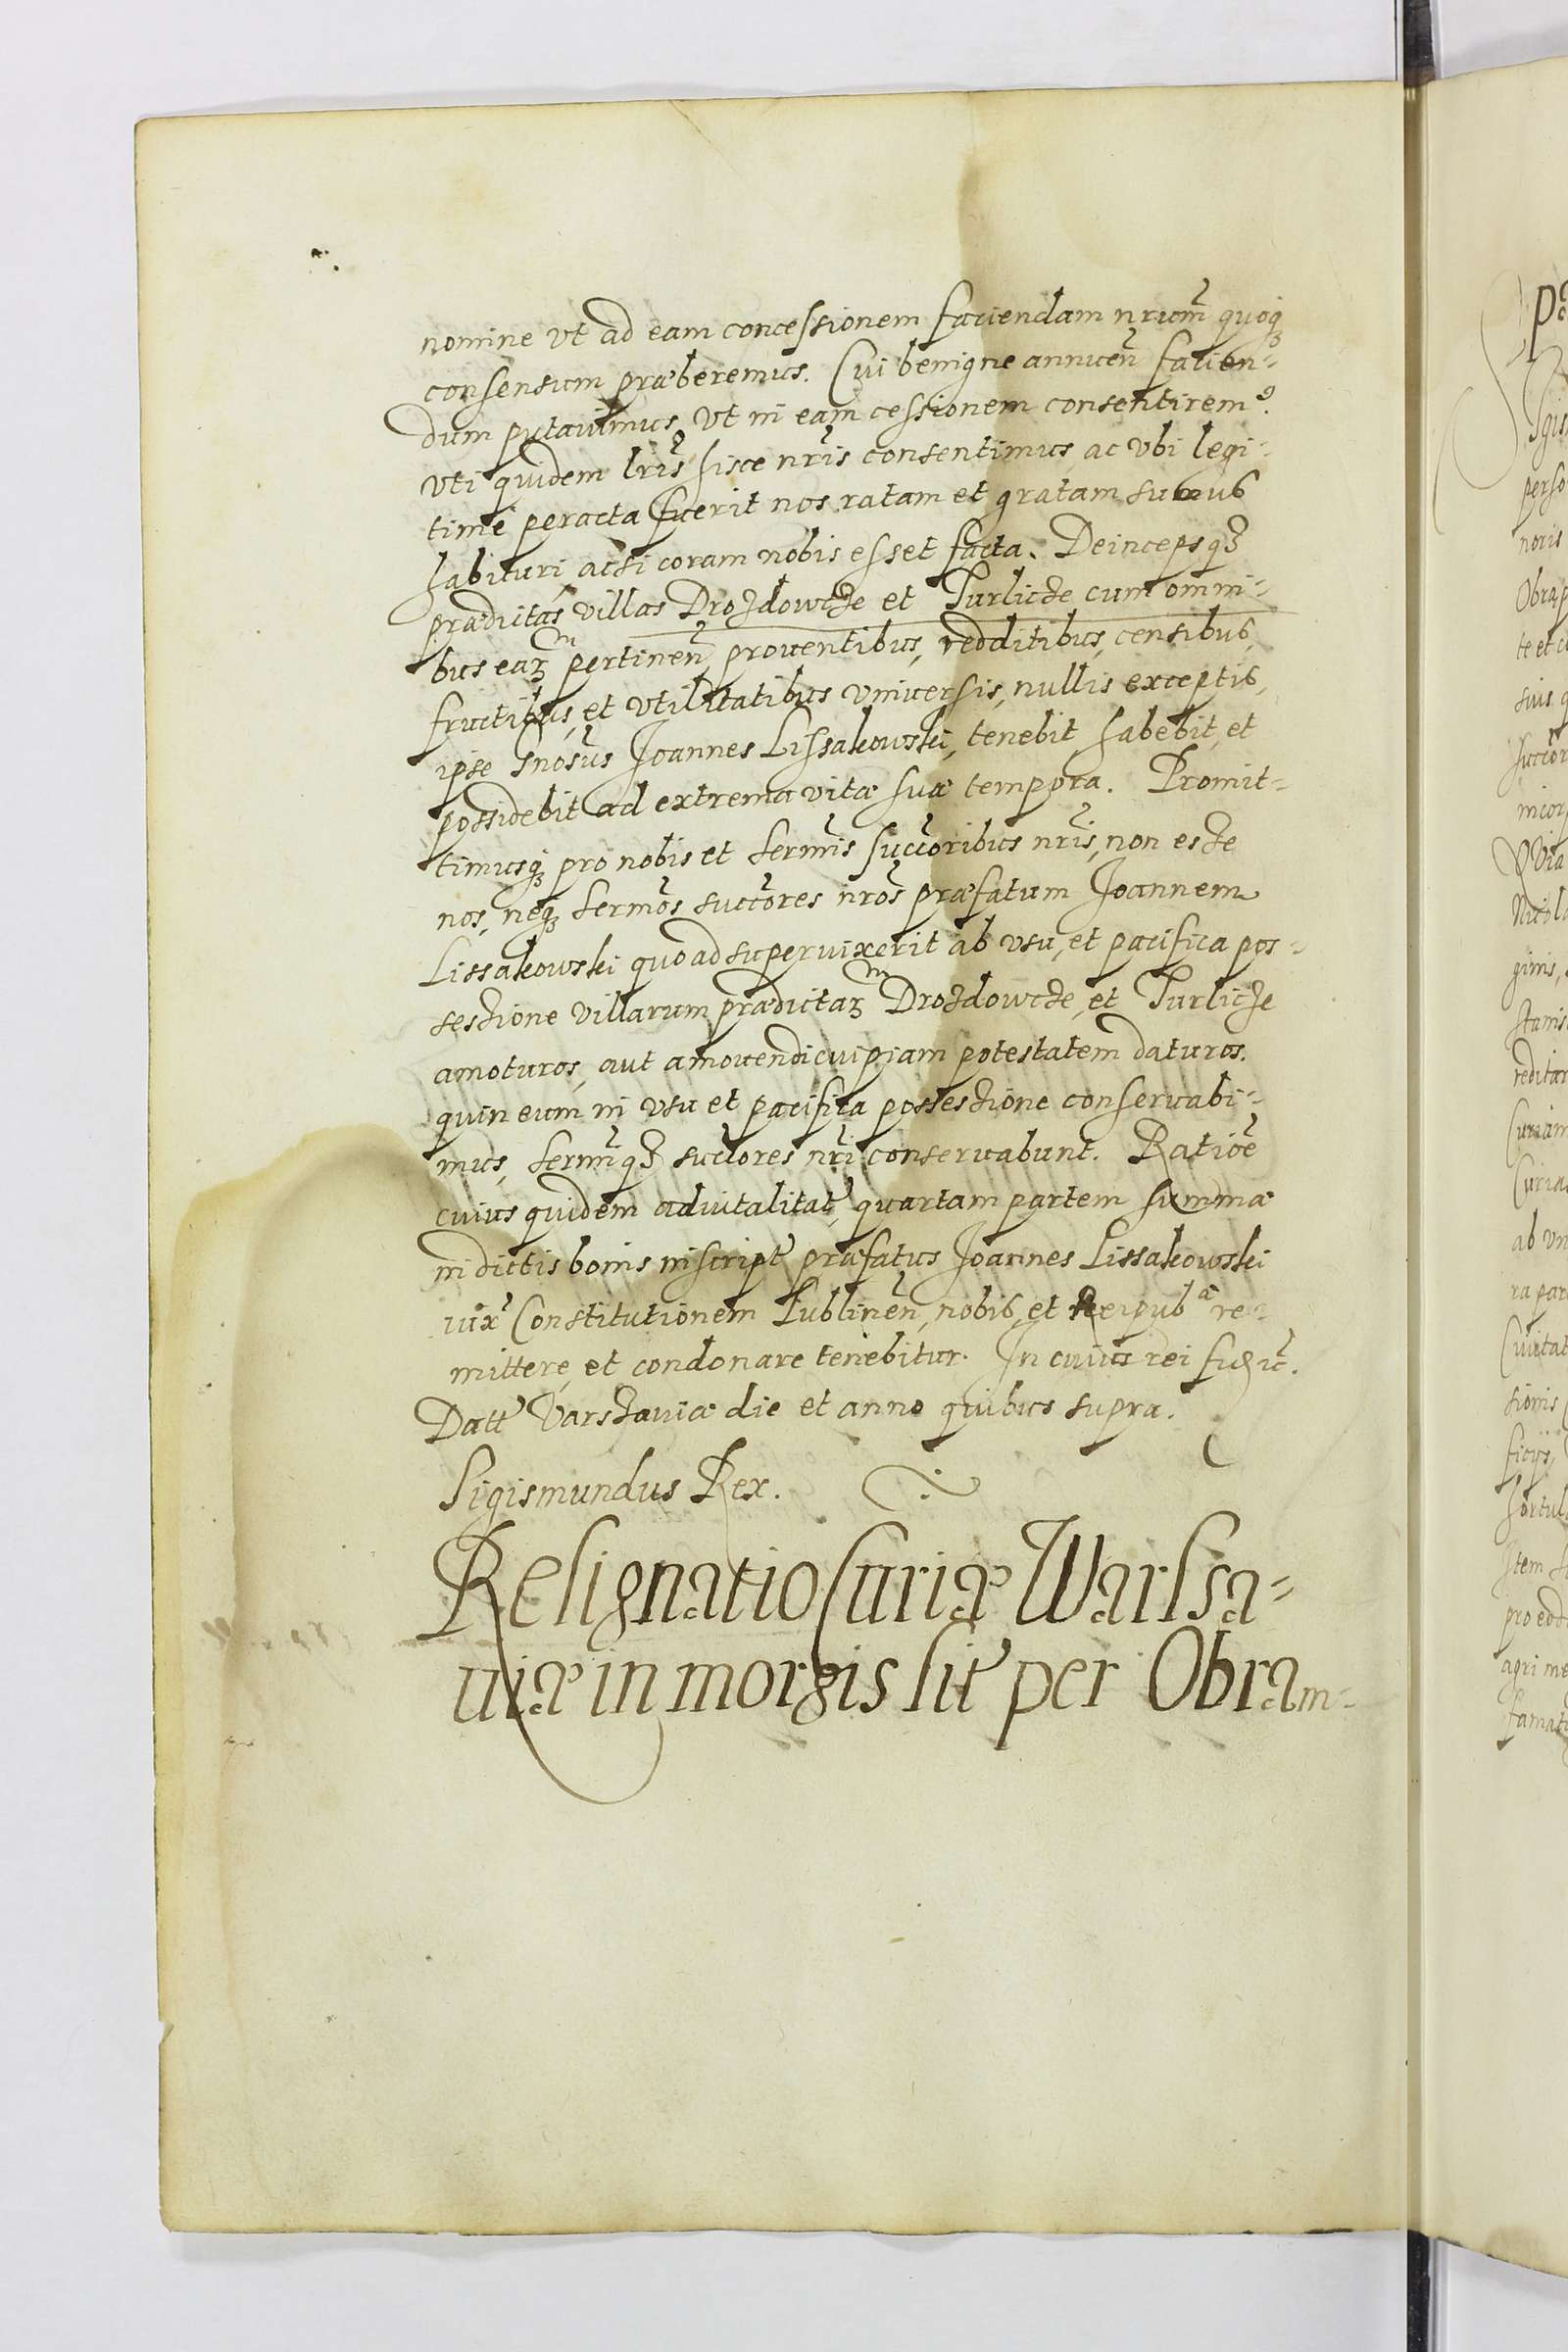 nomine vt ad eam concessionem faciendam nrum̃ quoqꝫ
consensum præberemus. Cui benigne annuen̄ facien-
dum putauimus, vt in eam cessionem consentirem⁹.
vti quidem lris̃ hisce nris̃ consentimus, ac vbi legi-
time peracta fuerit nos ratam et gratam sumus
habituri, acsi coram nobis esset facta. Deincepsqꝫ
prædictas villas Drozdowcze et Turlicze cum omni-
bus earꝫ pertinen̄ prouentibus, redditibus, censibus,
fructibus, et vtilitatibus vniuersis, nullis exceptis,
ipse Gnosus̃ Joannes Lissakowski, tenebit, habebit, et
possidebit ad extrema vitæ suæ tempora. Promit-
timusqꝫ pro nobis et sermis̃ succoribus̃ nris̃, non esse
nos, neqꝫ sermos̃ succores̃ nros̃ præfatum Joannem
Lissakowski quoad superuixerit ab vsu, et pacifica pos-
sessione villarum prædictarꝫ Drozdowcze, et Turlicze
amoturos, aut amouendi cuipiam potestatem daturos.
quin eum in vsu et pacifica possessione conseruabi-
mus, sermiq̃ꝫ succores̃ nrĩ conseruabunt. Ratioe̅
cuius quidem aduitalitat̃, quartam partem summæ
in dictis bonis inscript̃ præfatus Joannes Lissakowski
iux̃ Constitutionem Lublinen̄, nobis, et Reipubᵃ re-
mittere, et condonare tenebitur. In cuius rei fidc̃.
Datt̃ Varssauiæ die et anno quibus supra.
Sigismundus Rex.
Resignatio Curiæ Warssa-
uiæ in morgis sit̃ per Obram-